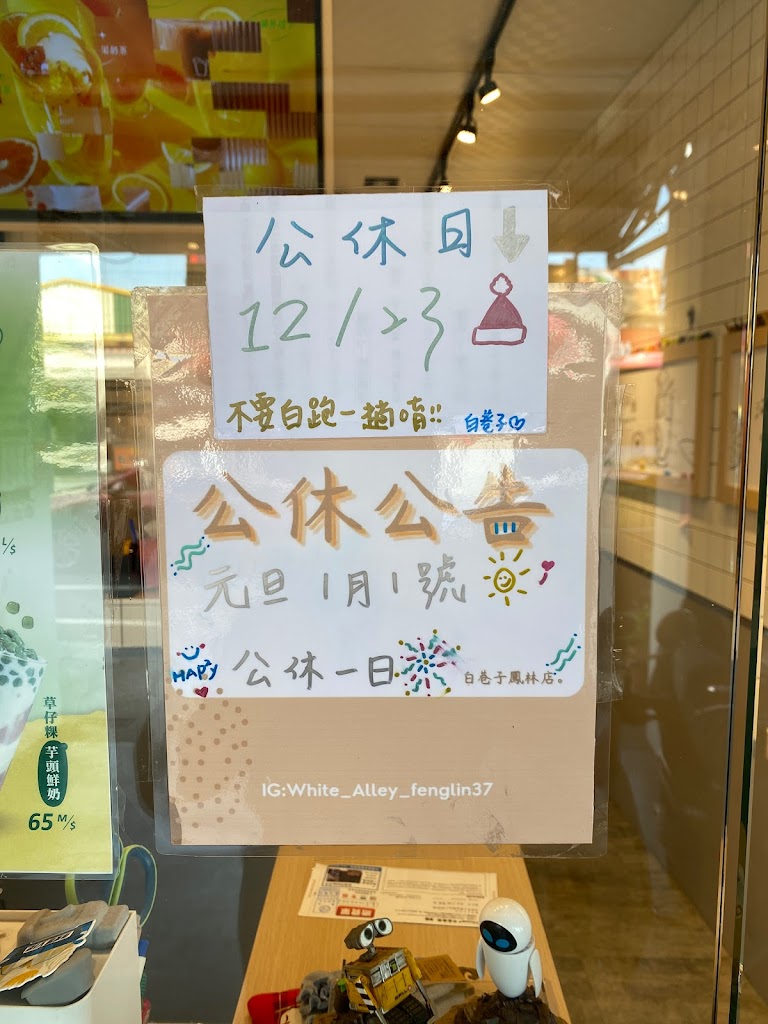 公休日
12/23
不要白跑一趟唷!!
白巷子
公休公告
元旦1月1號
HAPPY
公休一日
白巷子鳳林店。
IG:White_Alley_fenglin37
L/$
草仔粿
芋頭鮮奶
65 M/$